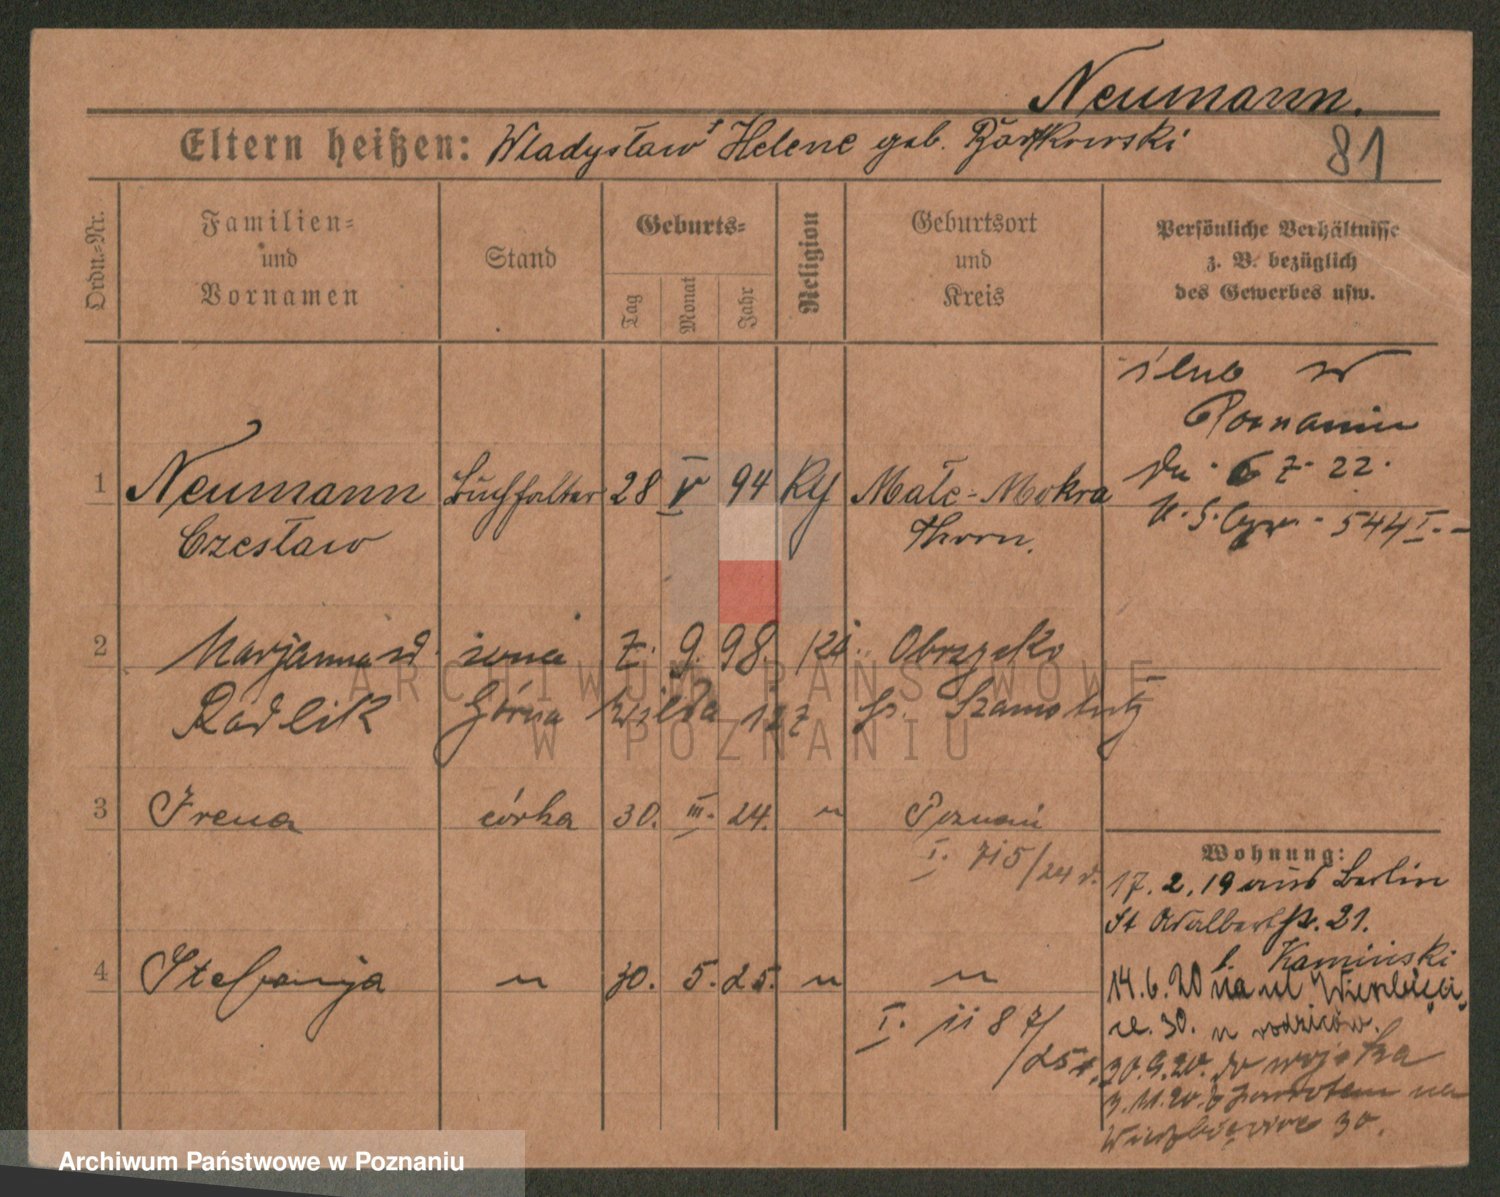 Neumann.
Eltern heißen: Władysław Helene geb.
81
Ordn.-Nr.
Familien-
und
Vornamen
Stand
Geburts-
Tag
Monat
Jahr
Religion
Geburtsort
und
Kreis
Persönliche Verhältnisse
z. B. bezüglich
des Gewerbes usw.
ślub w
Poznaniu
7. 22.
544 I.
1 Neumann Buchhalter 28 V 94 Małe-Mokra
Czesław Thorn.
2 Marjanna żona 7. 9. 98. Obrzycko
Radlik Górna Wilda 127 Szamotuły
3 Irena córka 30. III. 24. " Poznań
I. 715/24 r.
4 Stefanja " 30. 5. 25. " "
I. 1187/25 r.
Wohnung:
17. 2. 19 aus Berlin
St Adalbertstr. 21.
b. Kamiński
14. 6. 20 na ul Wierzbięci
30. u rodziców.
20. 9. 20. do wojska
3. 11. 20. z powrotem na
Wierzbięcice 30.
ARCHIWUM PAŃSTWOWE
W POZNANIU
Archiwum Państwowe w Poznaniu